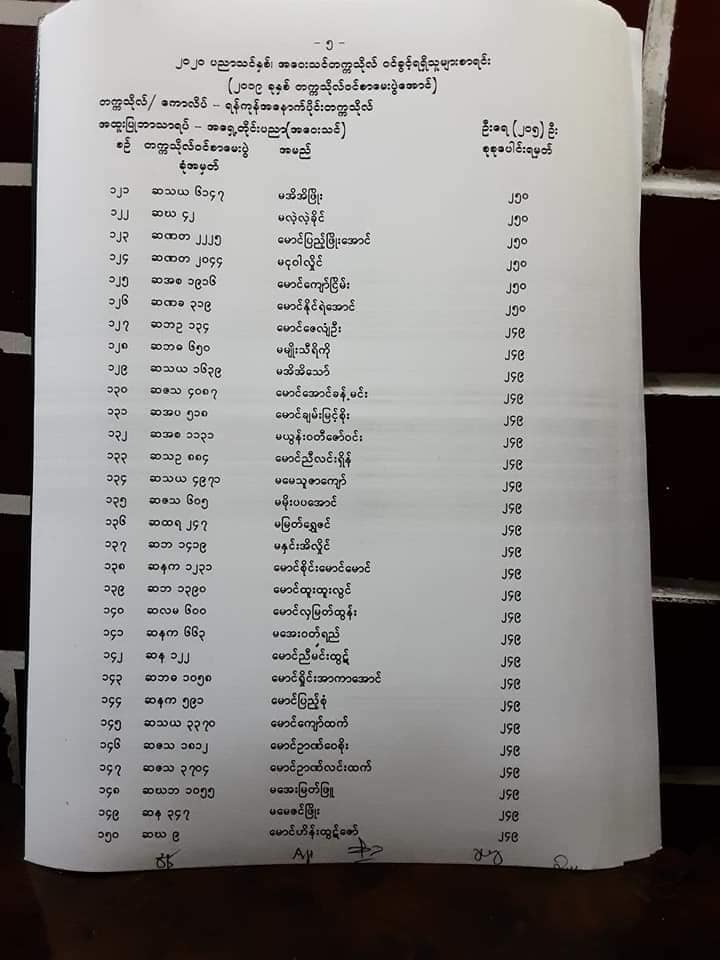 - ၅ -
၂၀၂၀ ပညာသင်နှစ်၊ အဝေးသင်တက္ကသိုလ် ဝင်ခွင့်ရရှိသူများစာရင်း
(၂၀၁၉ ခုနှစ် တက္ကသိုလ်ဝင်စာမေးပွဲအောင်)
တက္ကသိုလ်/ ကောလိပ် - ရန်ကုန်အနောက်ပိုင်းတက္ကသိုလ်
အထူးပြုဘာသာရပ် - အရှေ့တိုင်းပညာ(အဝေးသင်) ဦးရေ (၂၁၅) ဦး
စဉ် တက္ကသိုလ်ဝင်စာမေးပွဲ အမည် စုစုပေါင်းရမှတ်
ခုံအမှတ်
၁၂၁ ဆသယ ၆၁၄၇ မအိအိဖြိုး ၂၅၀
၁၂၂ ဆဃ ၄၂ မလဲ့လဲ့ခိုင် ၂၅၀
၁၂၃ ဆဏတ ၂၂၂၅ မောင်ပြည့်ဖြိုးအောင် ၂၅၀
၁၂၄ ဆဏတ ၂၀၄၄ မငုဝါလှိုင် ၂၅၀
၁၂၅ ဆအစ ၁၉၁၆ မောင်ကျော်ငြိမ်း ၂၅၀
၁၂၆ ဆဏခ ၃၁၉ မောင်နိုင်ရဲအောင် ၂၅၀
၁၂၇ ဆဘဥ ၁၃၄ မောင်ဇေလျံဦး ၂၄၉
၁၂၈ ဆဘဓ ၆၅၀ မမျိုးသီရိကို ၂၄၉
၁၂၉ ဆသယ ၁၆၃၉ မအိအိသော် ၂၄၉
၁၃၀ ဆဇသ ၄၀၈၇ မောင်အောင်ခန့်မင်း ၂၄၉
၁၃၁ ဆအပ ၅၁၈ မောင်ချမ်းမြင့်စိုး ၂၄၉
၁၃၂ ဆအစ ၁၁၃၁ မယွန်းဝတီဇော်ဝင်း ၂၄၉
၁၃၃ ဆသဥ ၈၈၄ မောင်ညီလင်းရှိန် ၂၄၉
၁၃၄ ဆသယ ၄၉၇၁ မမေသူဇာကျော် ၂၄၉
၁၃၅ ဆဇသ ၆၀၅ မမိုးပပအောင် ၂၄၉
၁၃၆ ဆထရ ၂၄၇ မမြတ်ရွှေဇင် ၂၄၉
၁၃၇ ဆဘ ၁၄၁၉ မနှင်းအိလှိုင် ၂၄၉
၁၃၈ ဆနက ၁၂၃၁ မောင်စိုင်းမောင်မောင် ၂၄၉
၁၃၉ ဆဘ ၁၃၉၀ မောင်ထူးထူးလွင် ၂၄၉
၁၄၀ ဆလမ ၆၀၀ မောင်လှမြတ်ထွန်း ၂၄၉
၁၄၁ ဆနက ၆၆၃ မအေးဝတ်ရည် ၂၄၉
၁၄၂ ဆန ၁၂၂ မောင်ညီမင်းထွဋ် ၂၄၉
၁၄၃ ဆဘဓ ၁၀၅၈ မောင်ရှိုင်းအာကာအောင် ၂၄၉
၁၄၄ ဆနက ၅၉၁ မောင်ပြည့်စုံ ၂၄၉
၁၄၅ ဆသယ ၃၃၇၀ မောင်ကျော်ထက် ၂၄၉
၁၄၆ ဆဇသ ၁၈၁၂ မောင်ဉာဏ်ဝေစိုး ၂၄၉
၁၄၇ ဆဇသ ၃၇၀၄ မောင်ဉာဏ်လင်းထက် ၂၄၉
၁၄၈ ဆဃဘ ၁၀၅၅ မအေးမြတ်ဖြူ ၂၄၉
၁၄၉ ဆန ၃၄၇ မမေဇင်ဖြိုး ၂၄၉
၁၅၀ ဆဃ ၉ မောင်ဟိန်းထွဋ်ဇော် ၂၄၉